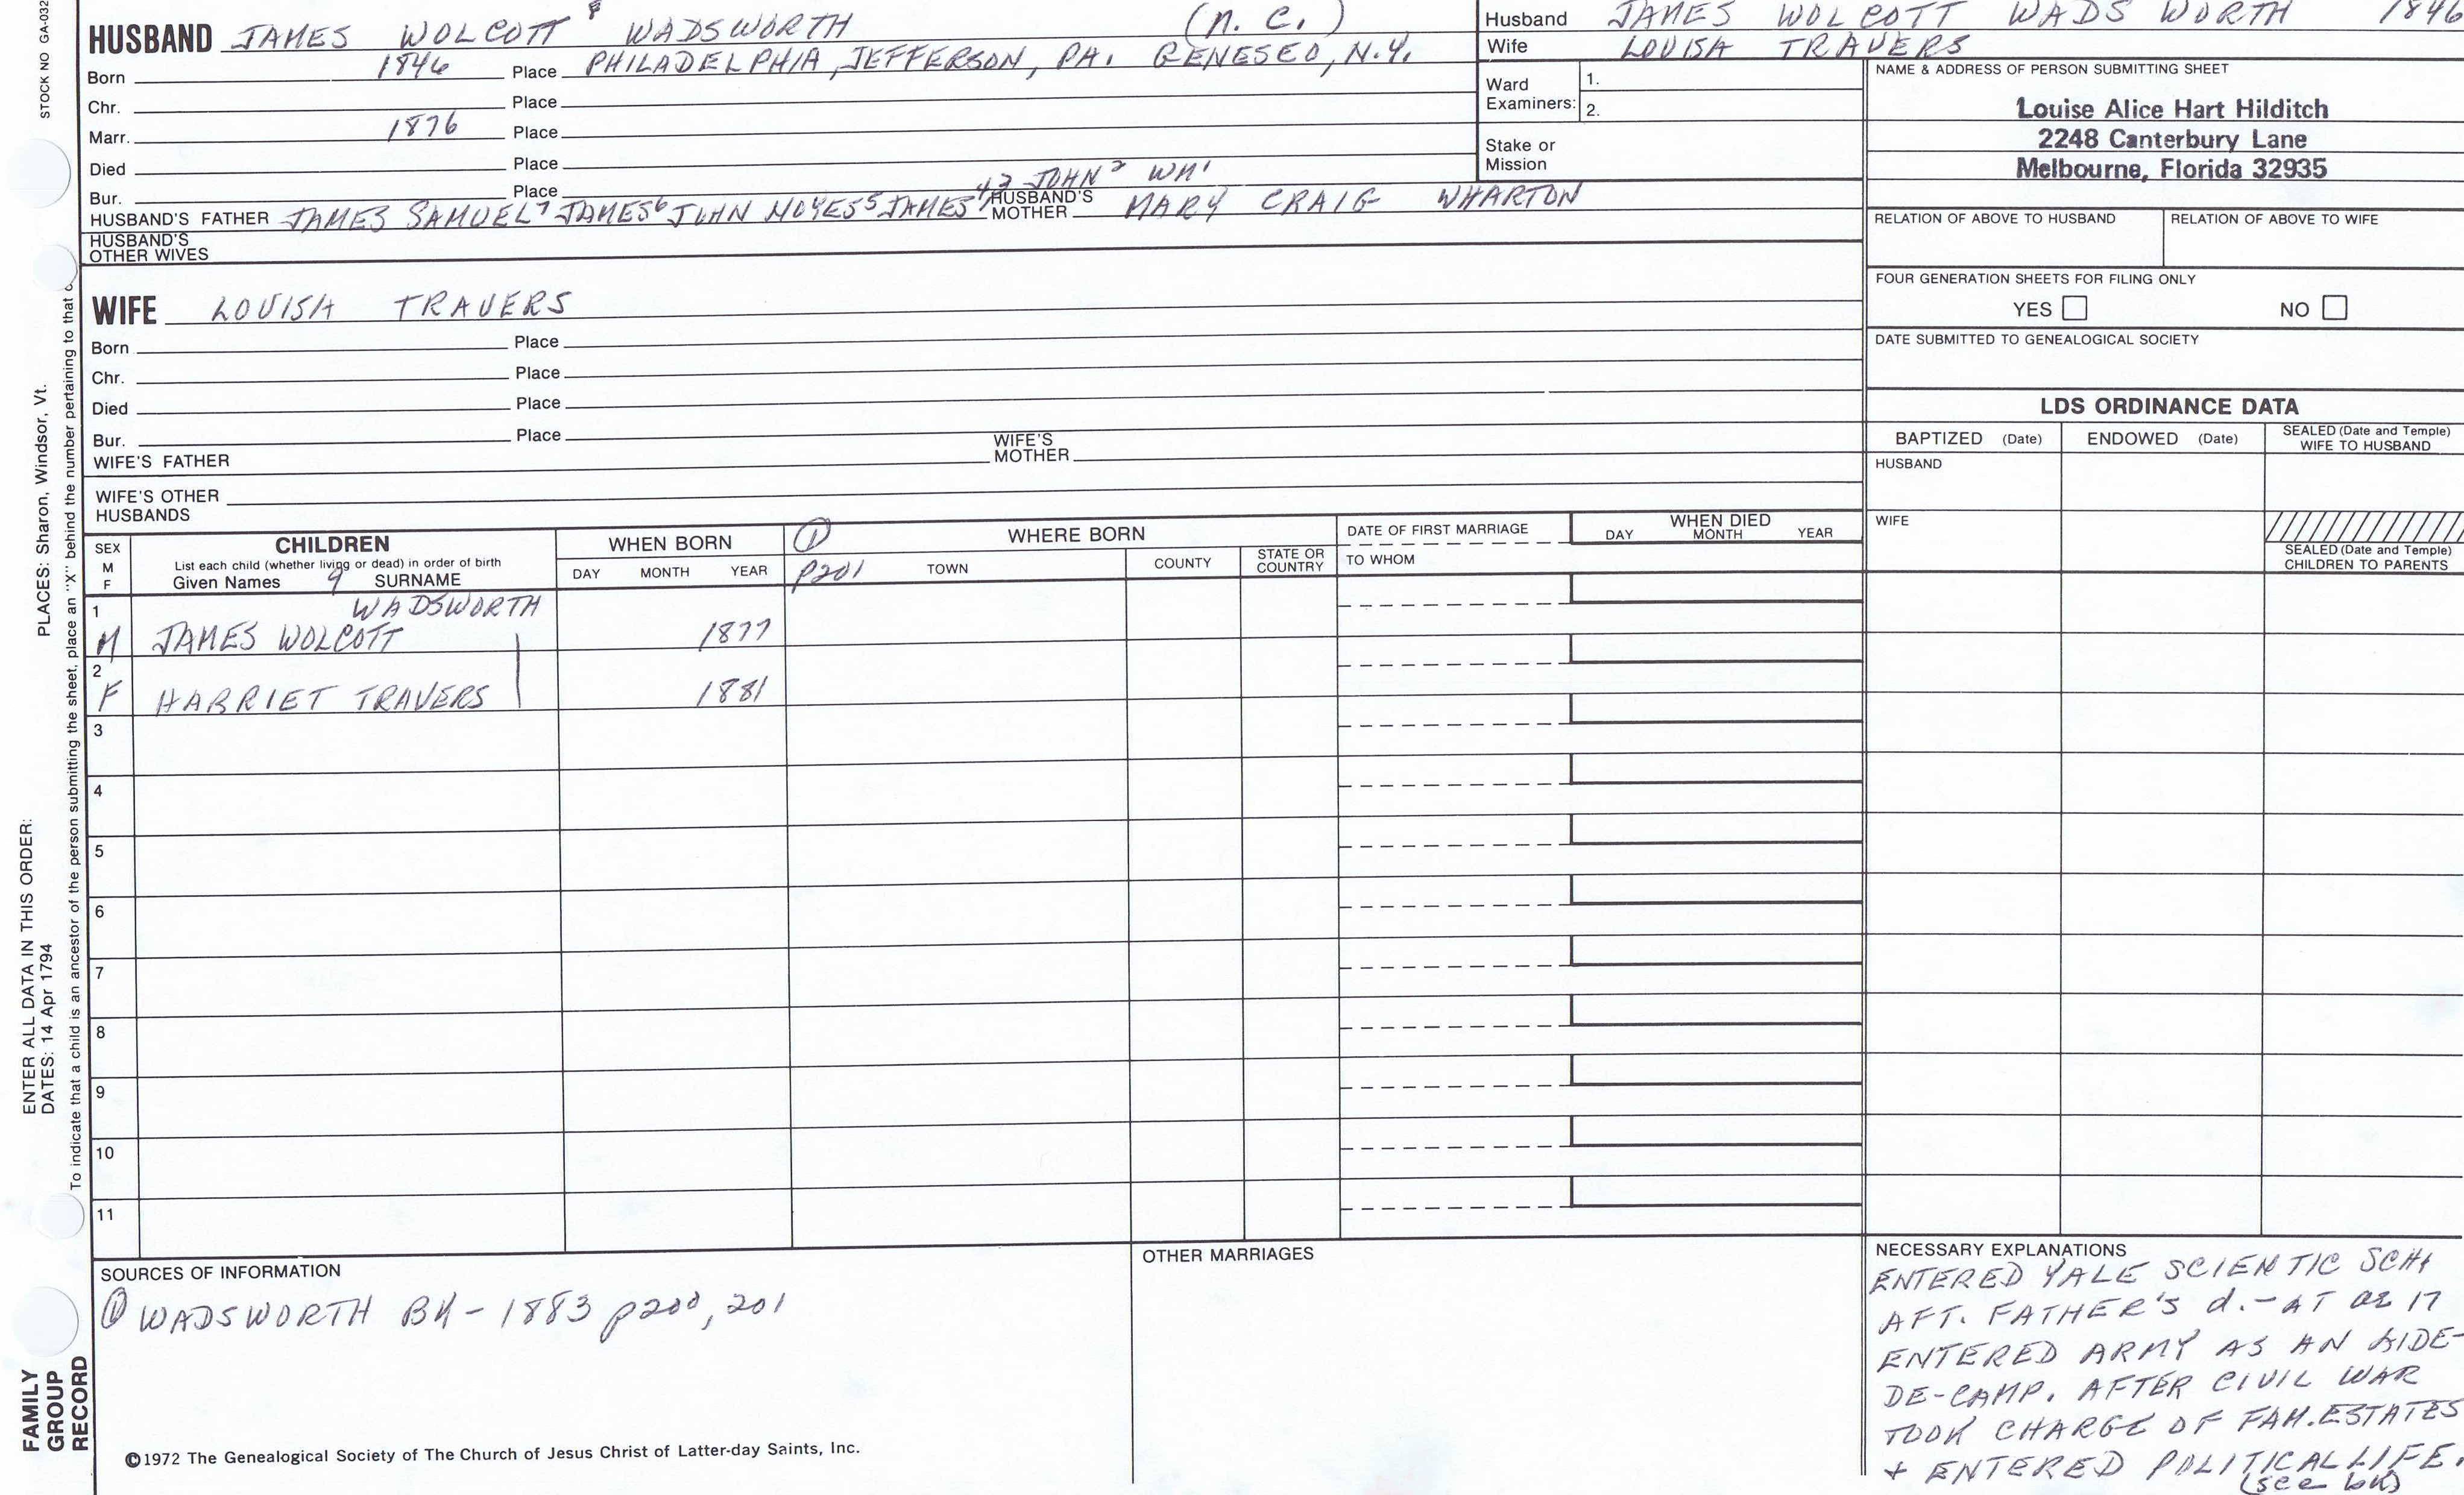 STOCK NO GA-032
HUSBAND JAMES WOLCOTT 8 WADSWORTH (N. C.)
Born 1846 Place PHILADELPHIA, JEFFERSON, PA. GENESEO, N.Y.
Chr. Place
Marr. 1876 Place
Died Place
Bur. Place
HUSBAND'S FATHER JAMES SAMUEL7 JAMES6 JOHN NOYES5 JAMES4,3 JOHN2 WM1
HUSBAND'S MOTHER MARY CRAIG WHARTON
HUSBAND'S
OTHER WIVES
Husband JAMES WOLCOTT WADS WORTH 1846
Wife LOUISA TRAVERS
Ward Examiners: 1.
2.
Stake or
Mission
NAME & ADDRESS OF PERSON SUBMITTING SHEET
Louise Alice Hart Hilditch
2248 Canterbury Lane
Melbourne, Florida 32935
RELATION OF ABOVE TO HUSBAND RELATION OF ABOVE TO WIFE
FOUR GENERATION SHEETS FOR FILING ONLY
YES NO
DATE SUBMITTED TO GENEALOGICAL SOCIETY
WIFE LOUISA TRAVERS
Born Place
Chr. Place
Died Place
Bur. Place
WIFE'S FATHER WIFE'S MOTHER
WIFE'S OTHER
HUSBANDS
LDS ORDINANCE DATA
BAPTIZED (Date) ENDOWED (Date) SEALED (Date and Temple) WIFE TO HUSBAND
HUSBAND
WIFE
SEALED (Date and Temple)
CHILDREN TO PARENTS
SEX M F
CHILDREN
List each child (whether living or dead) in order of birth
Given Names 9 SURNAME
WHEN BORN
DAY MONTH YEAR
① P201
WHERE BORN
TOWN COUNTY STATE OR COUNTRY
DATE OF FIRST MARRIAGE
TO WHOM
WHEN DIED
DAY MONTH YEAR
1 WADSWORTH
M JAMES WOLCOTT 1877
2
F HARRIET TRAVERS 1881
3
4
5
6
7
8
9
10
11
SOURCES OF INFORMATION
① WADSWORTH BK - 1883 p200, 201
OTHER MARRIAGES
NECESSARY EXPLANATIONS
ENTERED YALE SCIENTIC SCHL
AFT. FATHER'S d. - AT ae 17
ENTERED ARMY AS AN AIDE-
DE-CAMP. AFTER CIVIL WAR
TOOK CHARGE OF FAM. ESTATES
+ ENTERED POLITICAL LIFE.
(see bk)
©1972 The Genealogical Society of The Church of Jesus Christ of Latter-day Saints, Inc.
FAMILY
GROUP
RECORD
ENTER ALL DATA IN THIS ORDER:
DATES: 14 Apr 1794
PLACES: Sharon, Windsor, Vt.
To indicate that a child is an ancestor of the person submitting the sheet, place an "X" behind the number pertaining to that